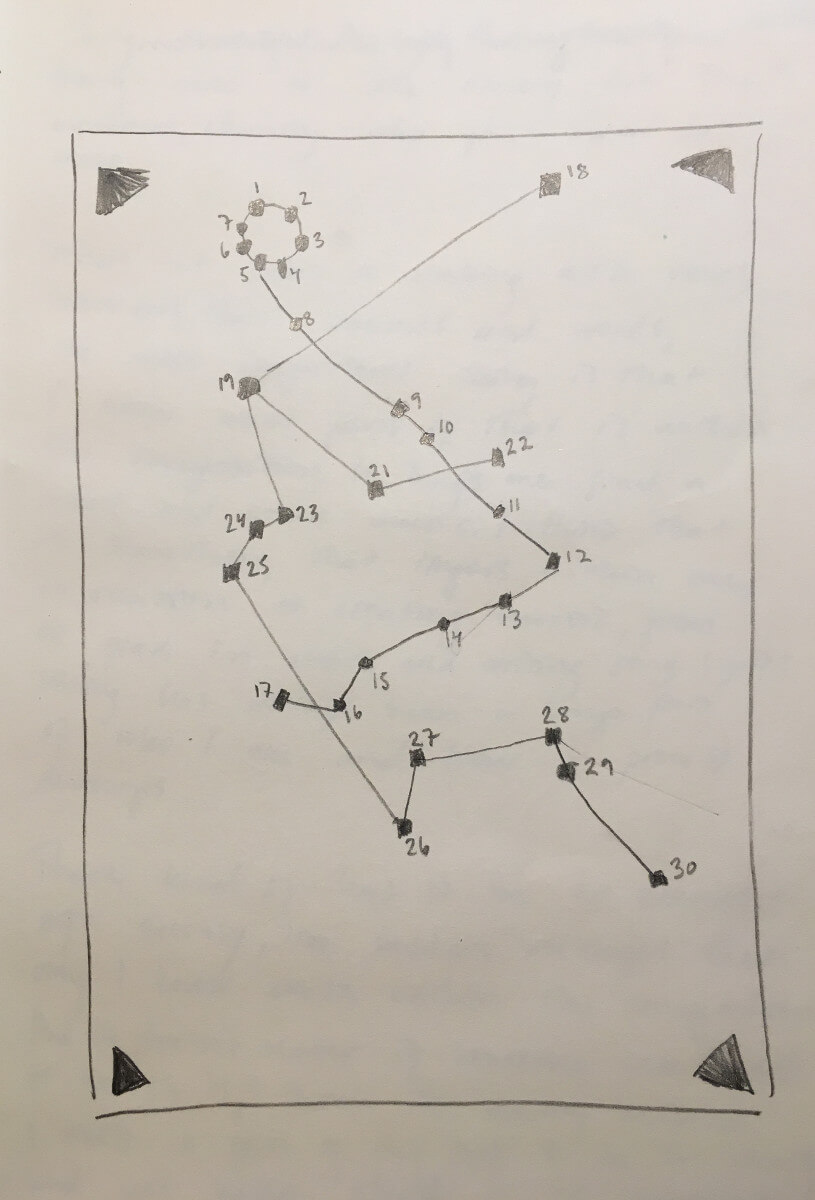 1
2
7
3
6
5
4
18
8
19
9
10
22
21
11
23
24
12
25
13
14
15
17
16
28
27
29
26
30